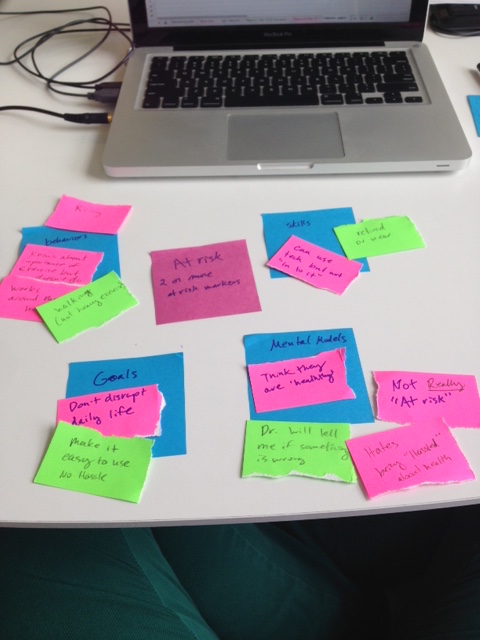 MacBook Pro
behaviors
walking
(not heavy exercise)
At risk
2 or more
at risk markers
skills
can use
tech but not
in to it"
retired
or near
Goals
Don't disrupt
daily life
make it
easy to use
No Hassle
Mental Models
Think they
are "healthy"
Dr. will tell
me if something
is wrong
Not Really
"At risk"
Hates
being "Hassled"
about health